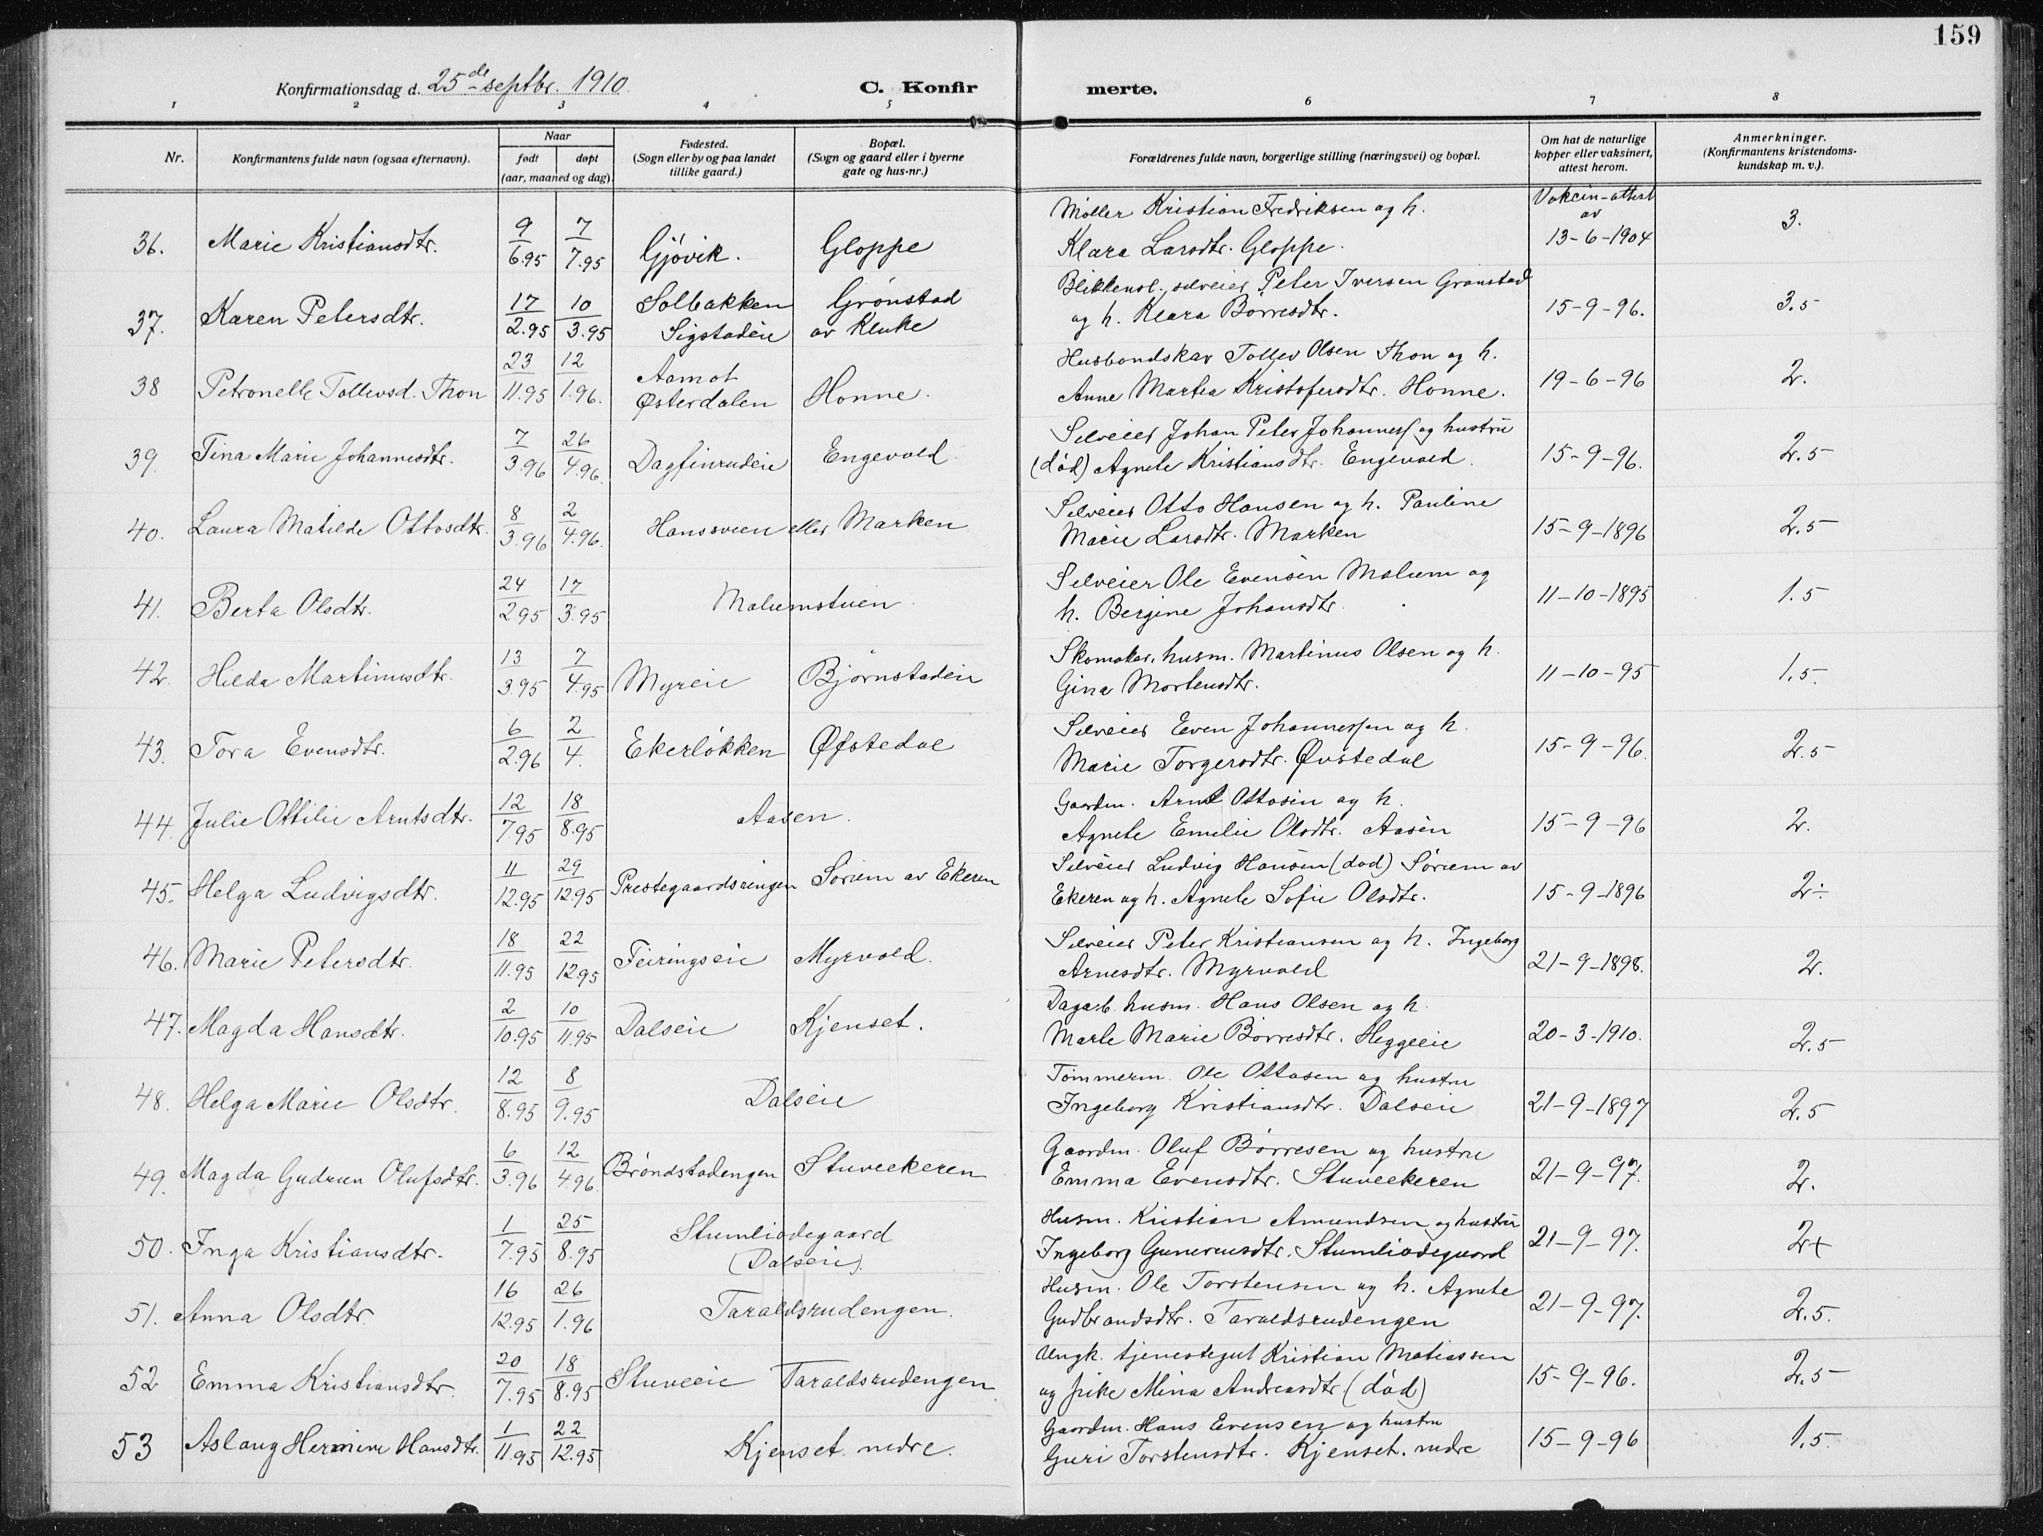 159
Konfirmationsdag d. 25de septbr. 1910. C. Konfirmerte.
1 2 3 4 5 6 7 8
Nr.
Konfirmantens fulde navn (ogsaa efternavn).
Naar
født døpt
(aar, maaned og dag).
Fødested.
(Sogn eller by og paa landet
tillike gaard.)
Bopæl.
(Sogn og gaard eller i byerne
gate og hus-nr.)
Forældrenes fulde navn, borgerlige stilling (næringsvei) og bopæl.
Om hat de naturlige
kopper eller vaksinert,
attest herom.
Anmerkninger.
(Konfirmantens kristendoms-
kundskap m. v.).
36. Marie Kristiansdtr. 9/6.95 7/7.95 Gjøvik. Gloppe Møller Kristian Fredriksen og h. Vakcin-attest av
Klara Larsdtr. Gloppe. 13-6-1904 3.
37. Karen Petersdtr. 17/2.95 10/3.95 Solbakken Grønstad Blikkensl., selveier Peter Iversen Grønstad
Sigstadeie av Kluke og h. Klara Børresdtr. 15-9-96. 3.5
38 Petronelle Tollevsd. Thon 23/11.95 12/1.96. Aamot Husbondskar Tollev Olsen Thon og h.
Østerdalen Honne. Anne Martea Kristofersdtr. Honne. 19-6-96 2.
39. Tina Marie Johannesdtr. 7/3.96 26/4.96. Dagfinrudeie Engevold. Selveier Johan Peter Johannes. og hustru
(død) Agnete Kristiansdtr. Engevold. 15-9-96. 2.5
40. Laura Matilde Ottosdtr. 8/3.96 2/4.96. Hansveen eller Marken Selveier Otto Hansen og h. Pauline
Marie Larsdtr. Marken 15-9-1896 2.5
41. Berta Olsdtr. 24/2.95 17/3.95 Malumstuen. Selveier Ole Evensen Malum og
h. Bergine Johansdtr. 11-10-1895 1.5
42. Hilda Martinusdtr. 13/3.95 7/4.95 Myreie Bjørnstadeie Skomaker, husm. Martinus Olsen og h.
Gina Mortensdtr. 11-10-95 1.5.
43. Tora Evensdtr. 6/2.96 2/4. Ekerløkken Øfstedal Selveier Even Johannessen og h.
Marie Torgersdtr. Øvstedal 15-9-96. 2.5
44. Julie Ottilie Arntsdtr. 12/7.95 18/8.95 Aasen. Gaardm. Arnt Ottosen og h.
Agnete Emilie Olsdtr. Aasen 15-9-96 2.
45. Helga Ludvigsdtr. 11/12.95 29/12.95 Prestegaardsringen Sørum av Ekeren Selveier Ludvig Hansen (død) Sørum av
Ekeren og h. Agnete Sofie Olsdtr. 15-9-1896 2÷
46. Marie Petersdtr. 18/11.95 22/12.95 Feiringseie Myrvold. Selveier Peter Kristiansen og h. Ingeborg
Arnesdtr. Myrvold 21-9-1898. 2.
47. Magda Hansdtr. 2/10.95 10/11.95 Dalseie Kjenset. Dagarb. husm. Hans Olsen og h.
Marte Marie Børresdtr. Heggeeie 20-3-1910. 2.5
48. Helga Marie Olsdtr. 12/8.95 8/9.95 Dalseie Tømmerm. Ole Ottosen og hustru
Ingeborg Kristiansdtr. Dalseie 21-9-1897 2.5
49. Magda Gudrun Olufsdtr. 6/3.96 12/4.96 Brøndstadengen Stuveekeren Gaardm. Oluf Børresen og hustru
Emma Evensdtr. Stuveekeren 21-9-97. 2.
50. Inga Kristiansdtr. 1/7.95 25/8.95 Stumliødegaard Husm. Kristian Amundsen og hustru
(Dalseie). Ingeborg Gunerusdtr. Stumliødegaard 21-9-97. 2+
51. Anna Olsdtr. 16/12.95 26/1.96 Taraldsrudengen. Husm. Ole Torstensen og h. Agnete
Gudbrandsdtr. Taraldsrudengen 21-9-97. 2.5.
52 Emma Kristiansdtr. 20/7.95 18/8.95 Stuveeie Taraldsrudengen. Ungk. tjenestegut Kristian Matiassen
og pike Mina Andreasdtr (død) 15-9-96. 2.5
53 Aslaug Hermine Hansdtr. 1/11.95 22/12.95 Kjenset nedre. Gaardm. Hans Evensen og hustru
Guri Torstensdtr. Kjenset. nedre 15-9-96 1.5.